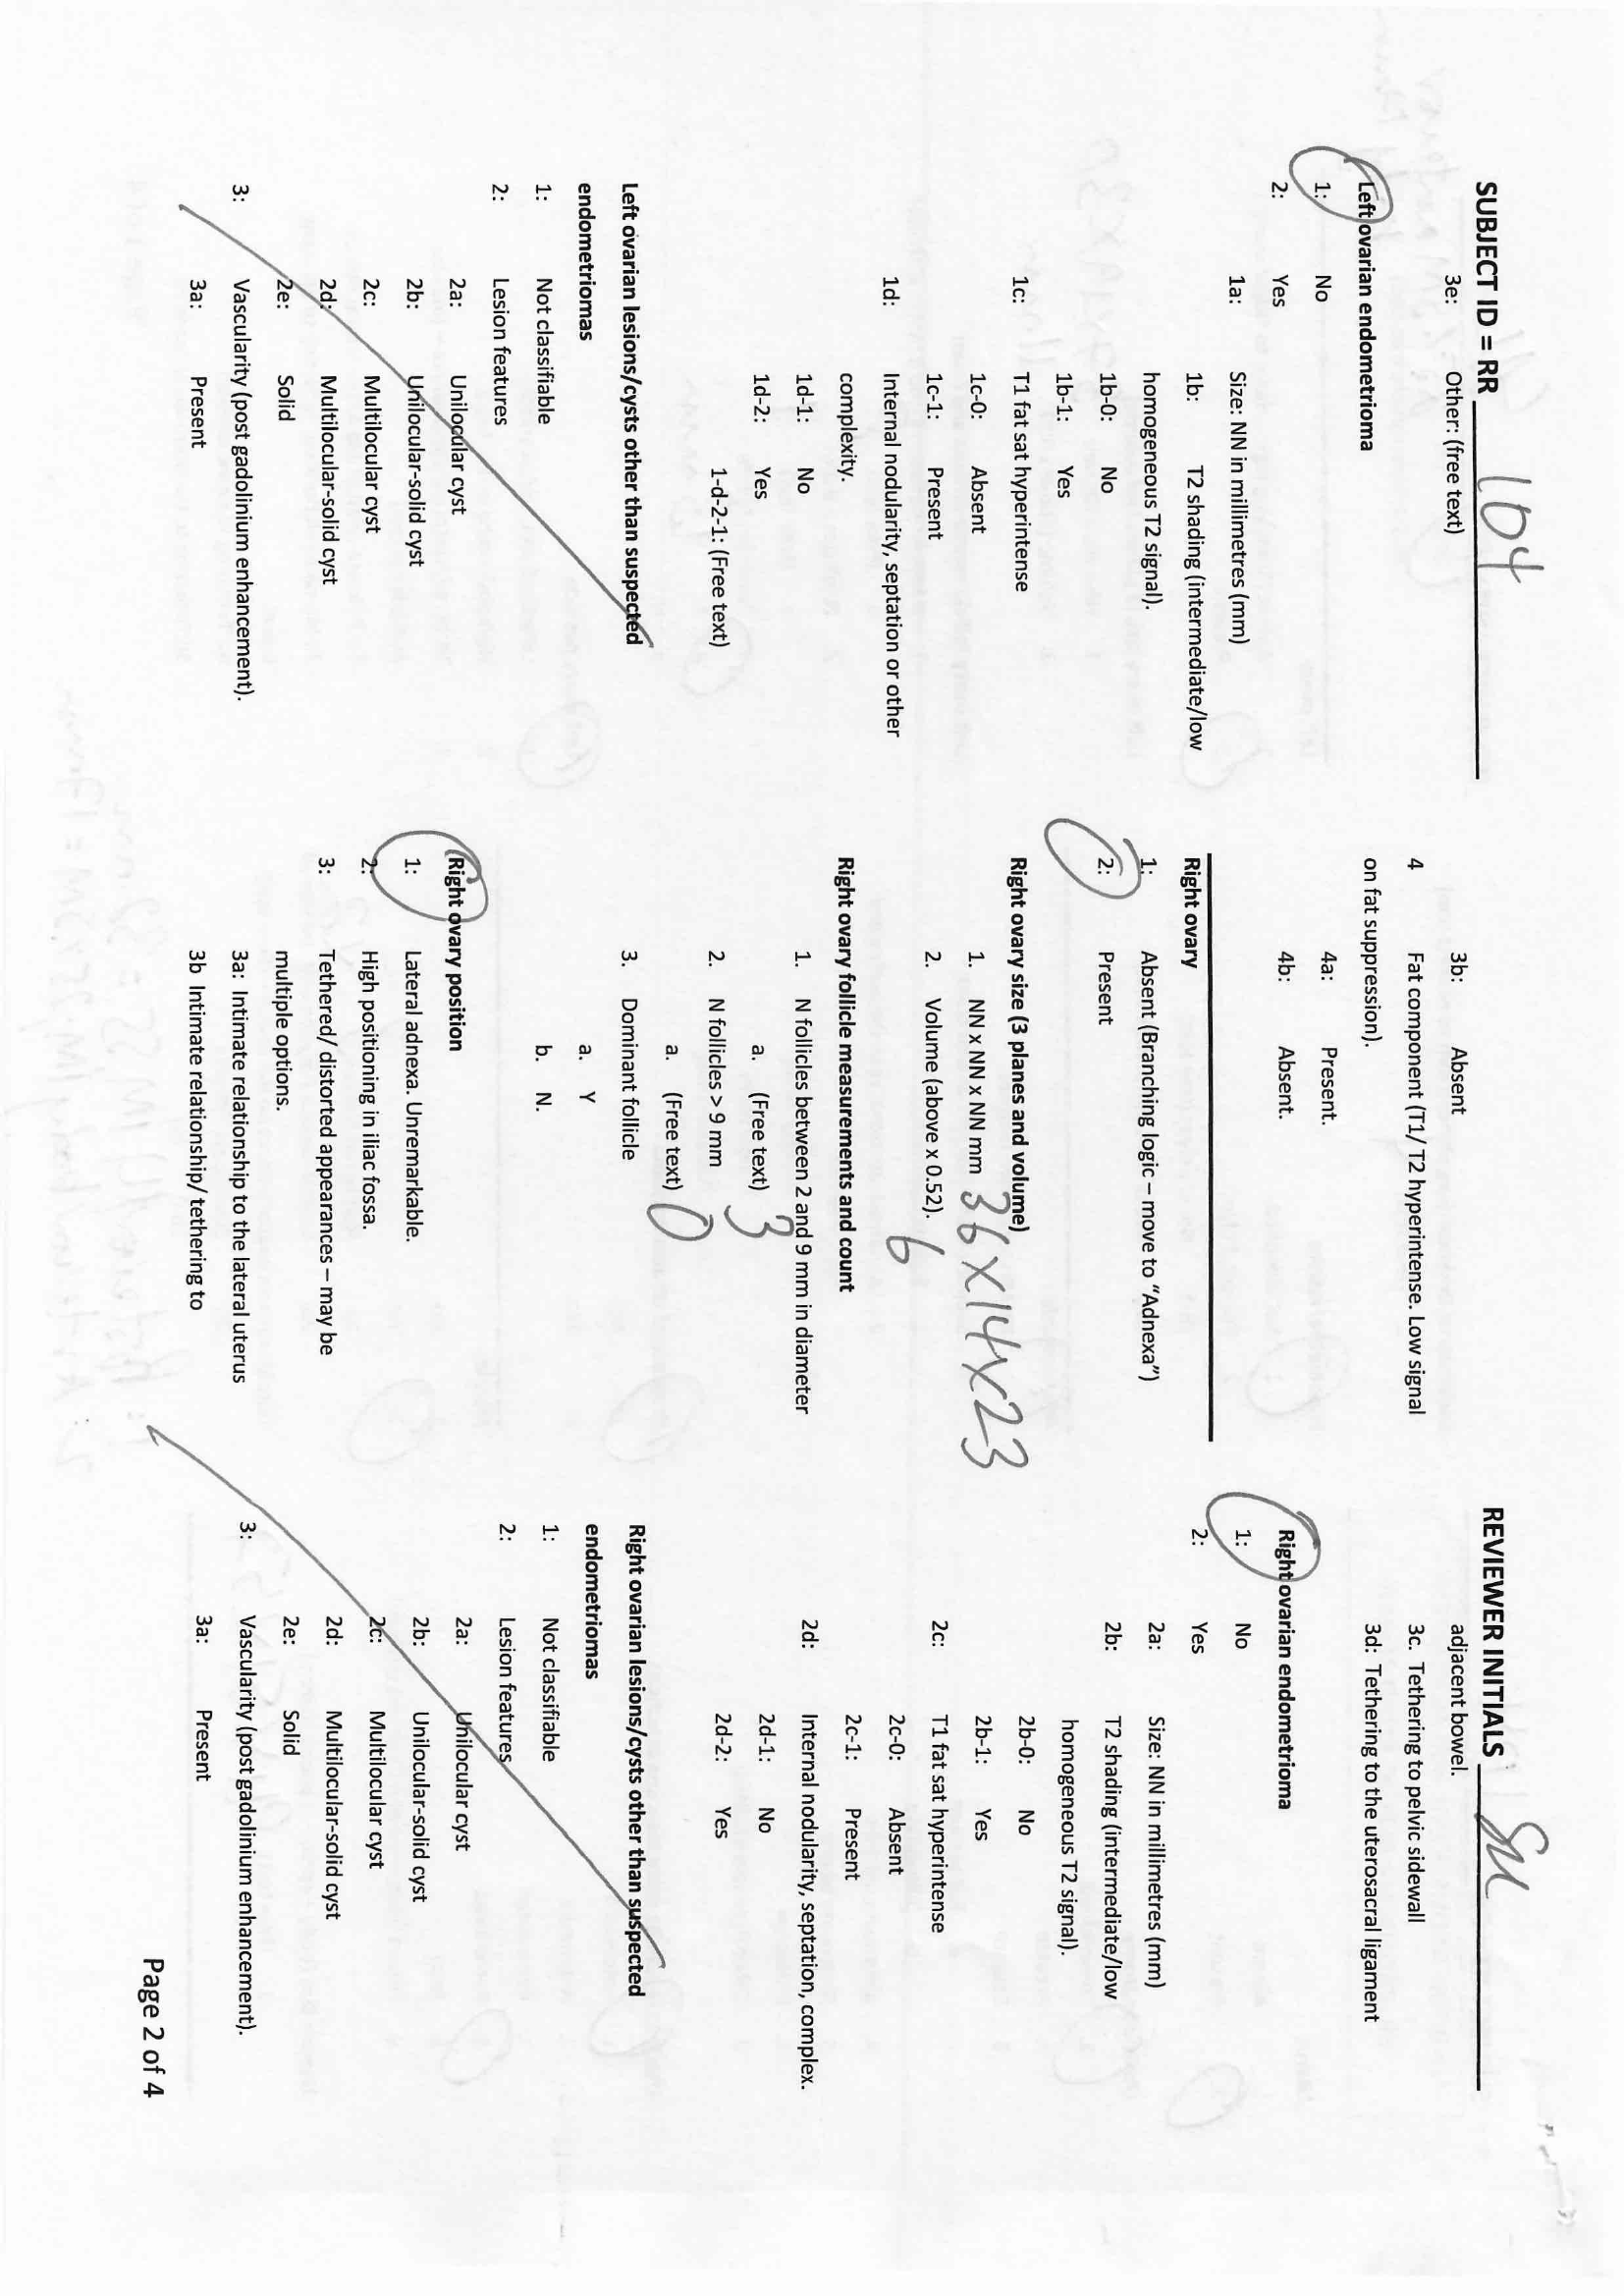 SUBJECT ID = RR 104
3e: Other: (free text)
Left ovarian endometrioma
1: No
2: Yes
1a: Size: NN in millimetres (mm)
1b: T2 shading (intermediate/low
homogeneous T2 signal).
1b-0: No
1b-1: Yes
1c: T1 fat sat hyperintense
1c-0: Absent
1c-1: Present
1d: Internal nodularity, septation or other
complexity.
1d-1: No
1d-2: Yes
1-d-2-1: (Free text)
Left ovarian lesions/cysts other than suspected
endometriomas
1: Not classifiable
2: Lesion features
2a: Unilocular cyst
2b: Unilocular-solid cyst
2c: Multilocular cyst
2d: Multilocular-solid cyst
2e: Solid
3: Vascularity (post gadolinium enhancement).
3a: Present
3b: Absent
4 Fat component (T1/ T2 hyperintense. Low signal
on fat suppression).
4a: Present.
4b: Absent.
Right ovary
1: Absent (Branching logic – move to “Adnexa”)
2: Present
Right ovary size (3 planes and volume)
1. NN x NN x NN mm 36 x 14 x 23
2. Volume (above x 0.52). 6
Right ovary follicle measurements and count
1. N follicles between 2 and 9 mm in diameter
a. (Free text) 3
2. N follicles > 9 mm
a. (Free text) 0
3. Dominant follicle
a. Y
b. N.
Right ovary position
1: Lateral adnexa. Unremarkable.
2: High positioning in iliac fossa.
3: Tethered/ distorted appearances – may be
multiple options.
3a: Intimate relationship to the lateral uterus
3b Intimate relationship/ tethering to
REVIEWER INITIALS SU
adjacent bowel.
3c. Tethering to pelvic sidewall
3d: Tethering to the uterosacral ligament
Right ovarian endometrioma
1: No
2: Yes
2a: Size: NN in millimetres (mm)
2b: T2 shading (intermediate/low
homogeneous T2 signal).
2b-0: No
2b-1: Yes
2c: T1 fat sat hyperintense
2c-0: Absent
2c-1: Present
2d: Internal nodularity, septation, complex.
2d-1: No
2d-2: Yes
Right ovarian lesions/cysts other than suspected
endometriomas
1: Not classifiable
2: Lesion features
2a: Unilocular cyst
2b: Unilocular-solid cyst
2c: Multilocular cyst
2d: Multilocular-solid cyst
2e: Solid
3: Vascularity (post gadolinium enhancement).
3a: Present
Page 2 of 4